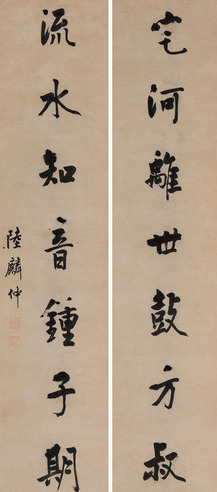 宅河離世鼓方叔
流水知音鍾子期
陸麟仲